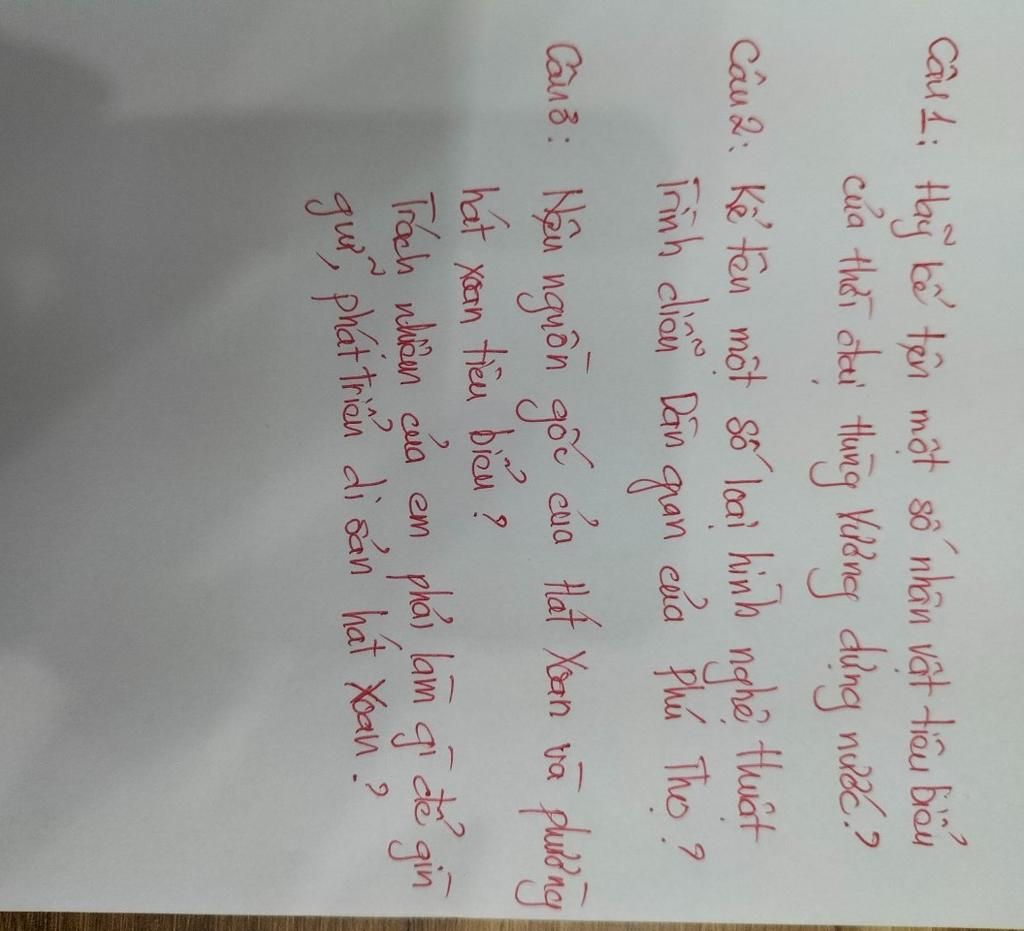 Câu 1: Hãy kể tên một số nhân vật tiêu biểu
của thời đại Hùng Vương dựng nước?
Câu 2: Kể tên một số loại hình nghệ thuật
Trình diễn Dân gian của Phú Thọ?
Câu 3: Nêu nguồn gốc của Hát Xoan và phường
hát xoan tiêu biểu?
Trách nhiệm của em phải làm gì để gìn
giữ, phát triển di sản hát Xoan?